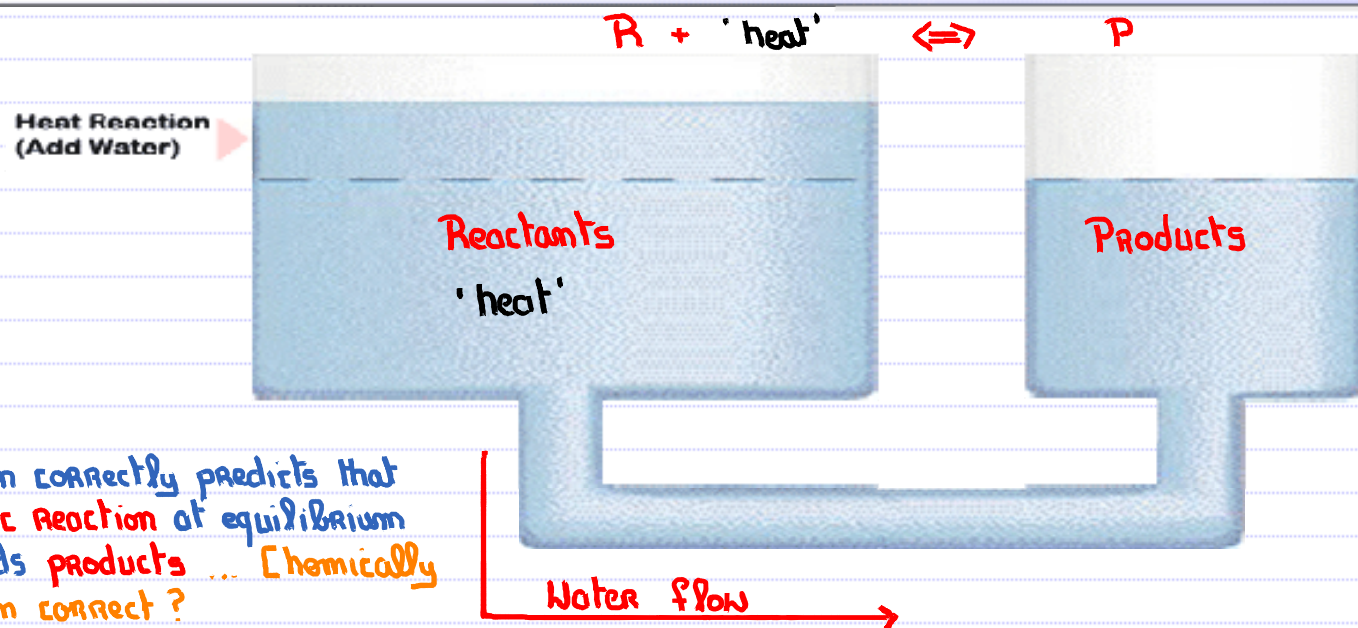 R + 'heat' <=> P
Heat Reaction
(Add Water)
Reactants
Products
'heat'
correctly predicts that
reaction at equilibrium
products ... Chemically
correct ?
Water flow